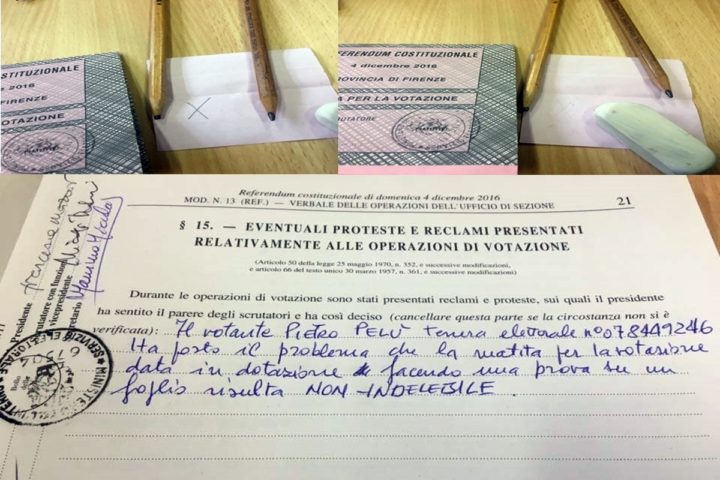 COSTITUZIONALE
2016
FIRENZE
VOTAZIONE
REFERENDUM COSTITUZIONALE
4 dicembre 2016
PROVINCIA DI FIRENZE
A PER LA VOTAZIONE
Referendum costituzionale di domenica 4 dicembre 2016
MOD. N. 13 (REF.) — VERBALE DELLE OPERAZIONI DELL'UFFICIO DI SEZIONE
21
§ 15. — EVENTUALI PROTESTE E RECLAMI PRESENTATI
RELATIVAMENTE ALLE OPERAZIONI DI VOTAZIONE
(Articolo 50 della legge 25 maggio 1970, n. 352, e successive modificazioni,
e articolo 66 del testo unico 30 marzo 1957, n. 361, e successive modificazioni)
Durante le operazioni di votazione sono stati presentati reclami e proteste, sui quali il presidente
ha sentito il parere degli scrutatori e ha così deciso (cancellare questa parte se la circostanza non si è
verificata): Il votante Pietro PELÙ tessera elettorale n° 078449246
Ha posto il problema che la matita per la votazione
data in dotazione facendo una prova su un
foglio risulta NON INDELEBILE.
Presidente
vicepresidente